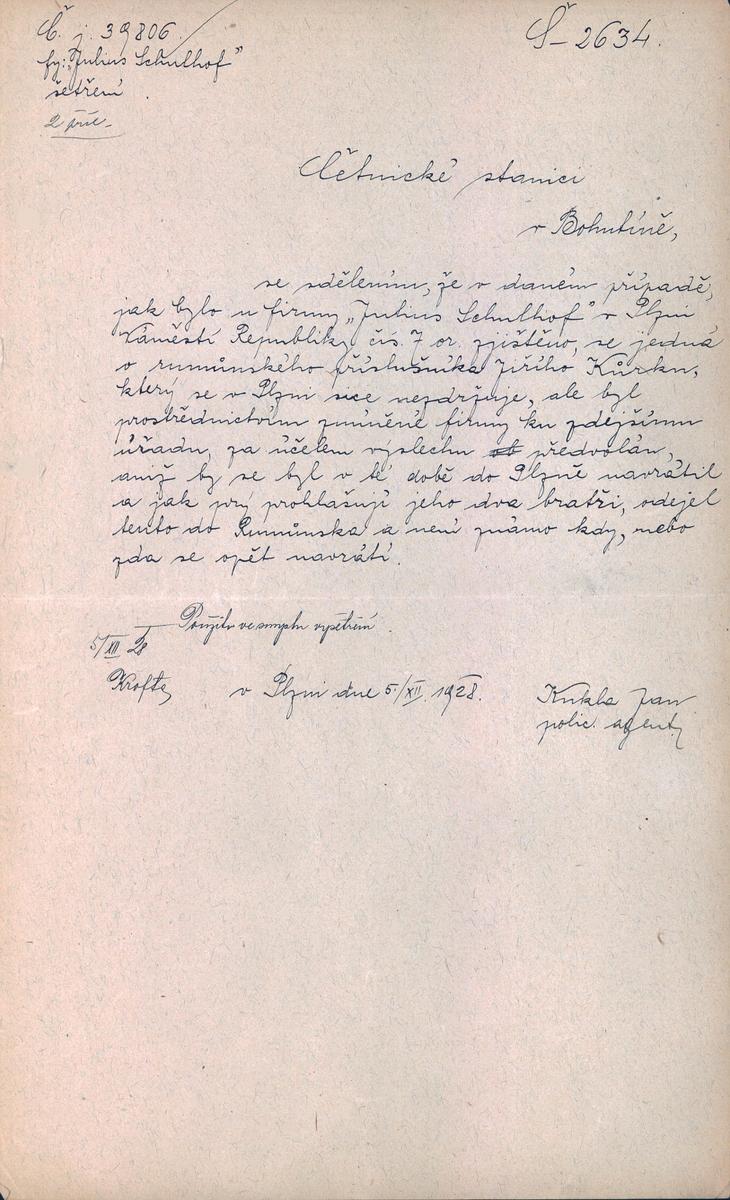 Č. j. 39806.
Š-2634.
fy: „Julius Schulhof"
šetření.
2 příl.
Četnické stanici
v Bohutíně,
se sdělením, že v daném případě,
jak bylo u firmy „Julius Schulhof" v Plzni
Náměstí Republiky čís. 7 or. zjištěno, se jedná
o rumunského příslušníka Jiřího Kůrku,
který se v Plzni sice nezdržuje, ale byl
prostřednictvím zmíněné firmy ku zdejšímu
úřadu, za účelem výslechu předvolán,
aniž by se byl v té době do Plzně navrátil
a jak prý prohlašují jeho dva bratři, odejel
tento do Rumunska a není známo kdy, nebo
zda se opět navrátí.
Použito ve smyslu vyšetření.
5/XII 28
v Plzni dne 5./XII. 1928.
Kukla Jan
polic. agent